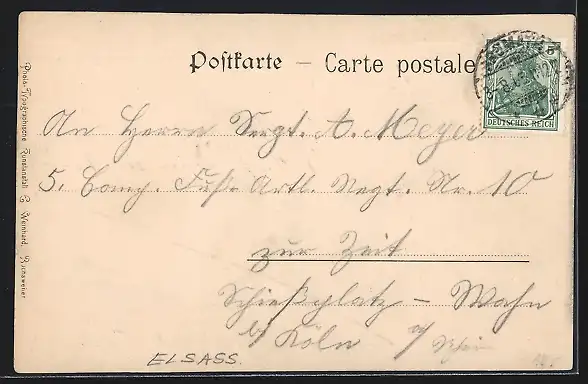 Postkarte – Carte postale
5
DEUTSCHES REICH
An Herrn Sergt. A. Meyer
5. Comp. Fuß-Artl. Regt. Nr. 10
zur Zeit
Schießplatz – Wahn
b/ Köln a/ Rhein
ELSASS.
Photo-Typographische Kunstanstalt E. Weinhard, Buchsweiler